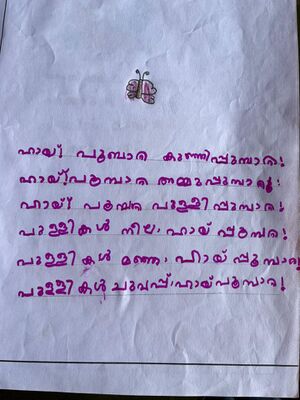 ഹായ്! പൂമ്പാറ്റ കുഞ്ഞിപ്പൂമ്പാറ്റ!
ഹായ്! പൂമ്പാറ്റ അമ്മുപ്പൂമ്പാറ്റ!
ഹായ്! പൂമ്പാറ്റ പുള്ളിപ്പൂമ്പാറ്റ!
പുള്ളികൾ നീല, ഹായ് പ്പൂമ്പാറ്റ!
പുള്ളികൾ മഞ്ഞ, ഹായ് പ്പൂമ്പാറ്റ!
പുള്ളികൾ ചുവപ്പ്, ഹായ് പൂമ്പാറ്റ!